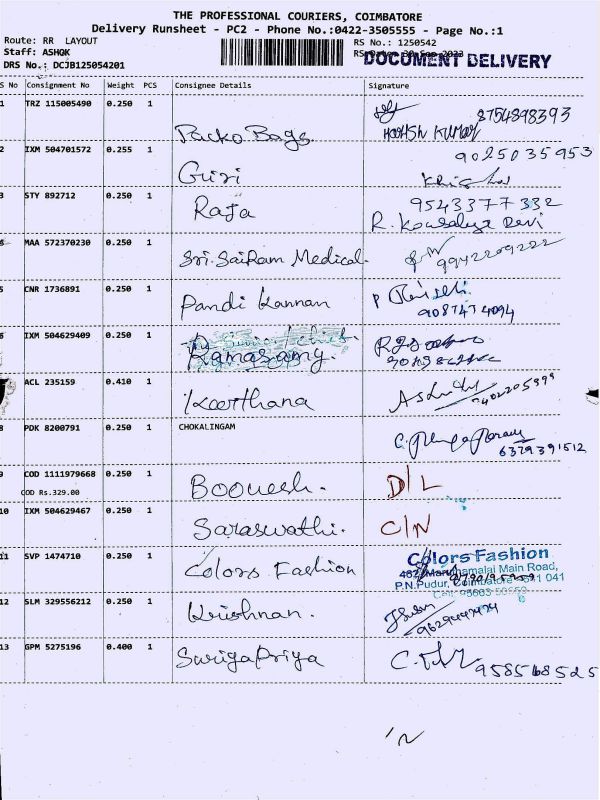 THE PROFESSIONAL COURIERS, COIMBATORE
Delivery Runsheet - PC2 - Phone No.:0422-3505555 - Page No.:1
Route: RR LAYOUT
RS No.: 1250542
Staff: ASHOK
DOCUMENT DELIVERY
DRS No.: DCJB125054201
S No Consignment No Weight PCS Consignee Details Signature
1 TRZ 115005490 0.250 1
8754898393
Packo Bags
2 IXM 504701572 0.255 1
9025035953
Guri
3 STY 892712 0.250 1
9543377332
Raja
R. Kousalya Devi
MAA 572370230 0.250 1
Sri. SaiRam Medical.
9942209222
5 CNR 1736891 0.250 1
Pandi Kannan
9087474094
6 IXM 504629409 0.250 1
Ramasamy.
ACL 235159 0.410 1
Keerthana
8 PDK 8200791 0.250 1 CHOKALINGAM
6379391512
9 COD 1111979668 0.250 1
COD Rs.329.00
Boonesh. D/L
10 IXM 504629467 0.250 1
Saraswathi. C/N
11 SVP 1474710 0.250 1
Colors Fashion
Colors Fashion
462, Maruthamalai Main Road,
P.N.Pudur, Coimbatore - 641 041
12 SLM 329556212 0.250 1
Krishnan.
13 GPM 5275196 0.400 1
Suriya Priya
958568525